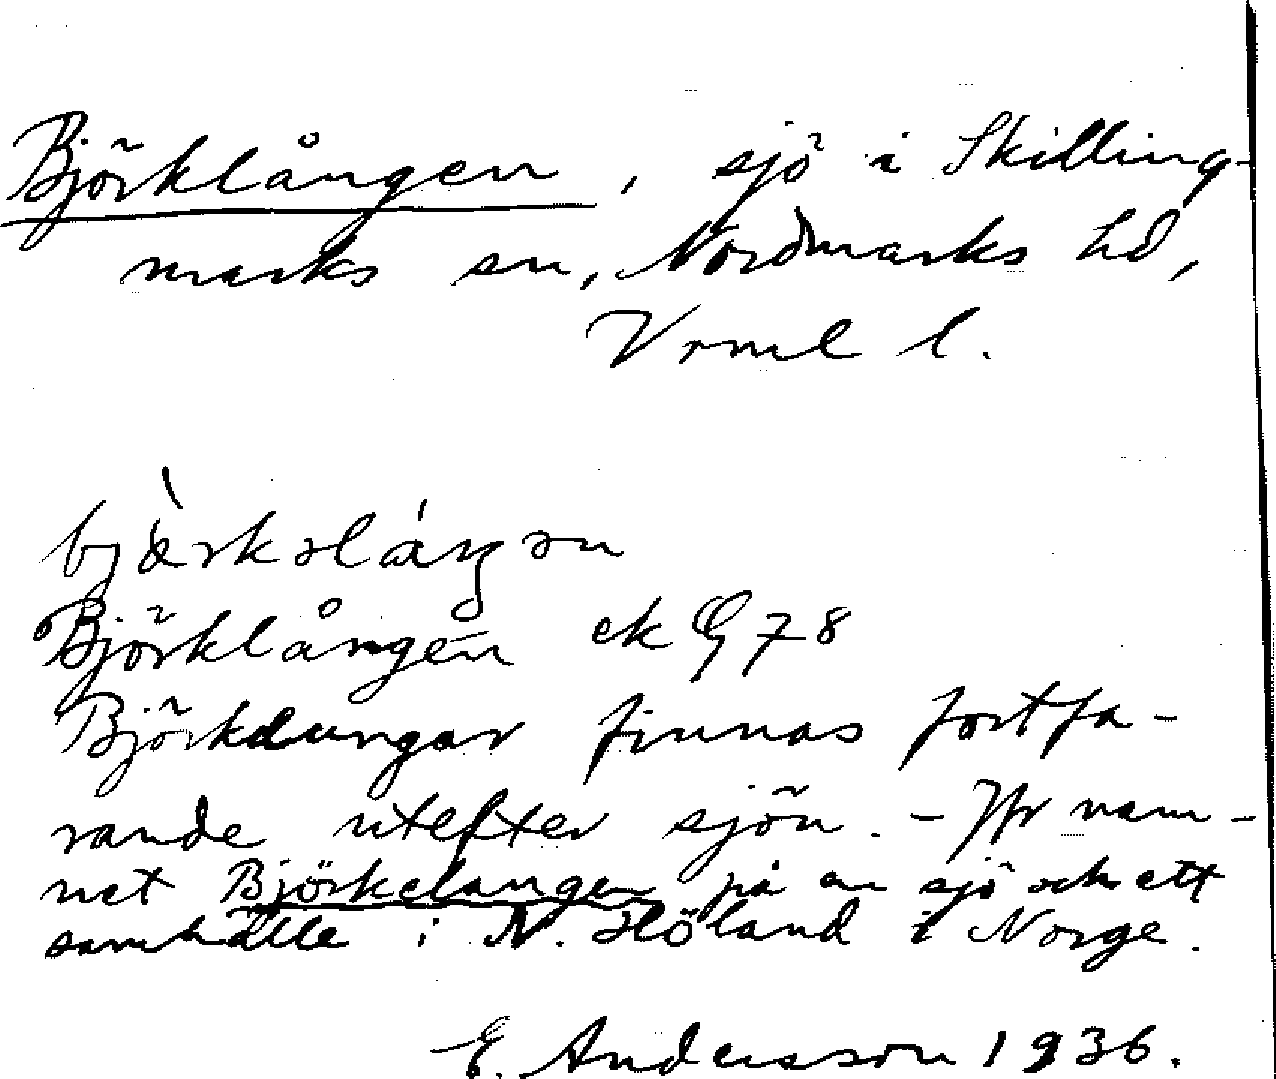 Björklången, sjö i Skilling-
marks sn, Nordmarks hd,
Vrml l.
Björklången ek G 78
Björkdungar finnas fortfa-
rande utefter sjön. - Jfr nam-
net Björkelangen på en sjö och ett
samhälle i N. Höland i Norge.
E. Andersson 1936.